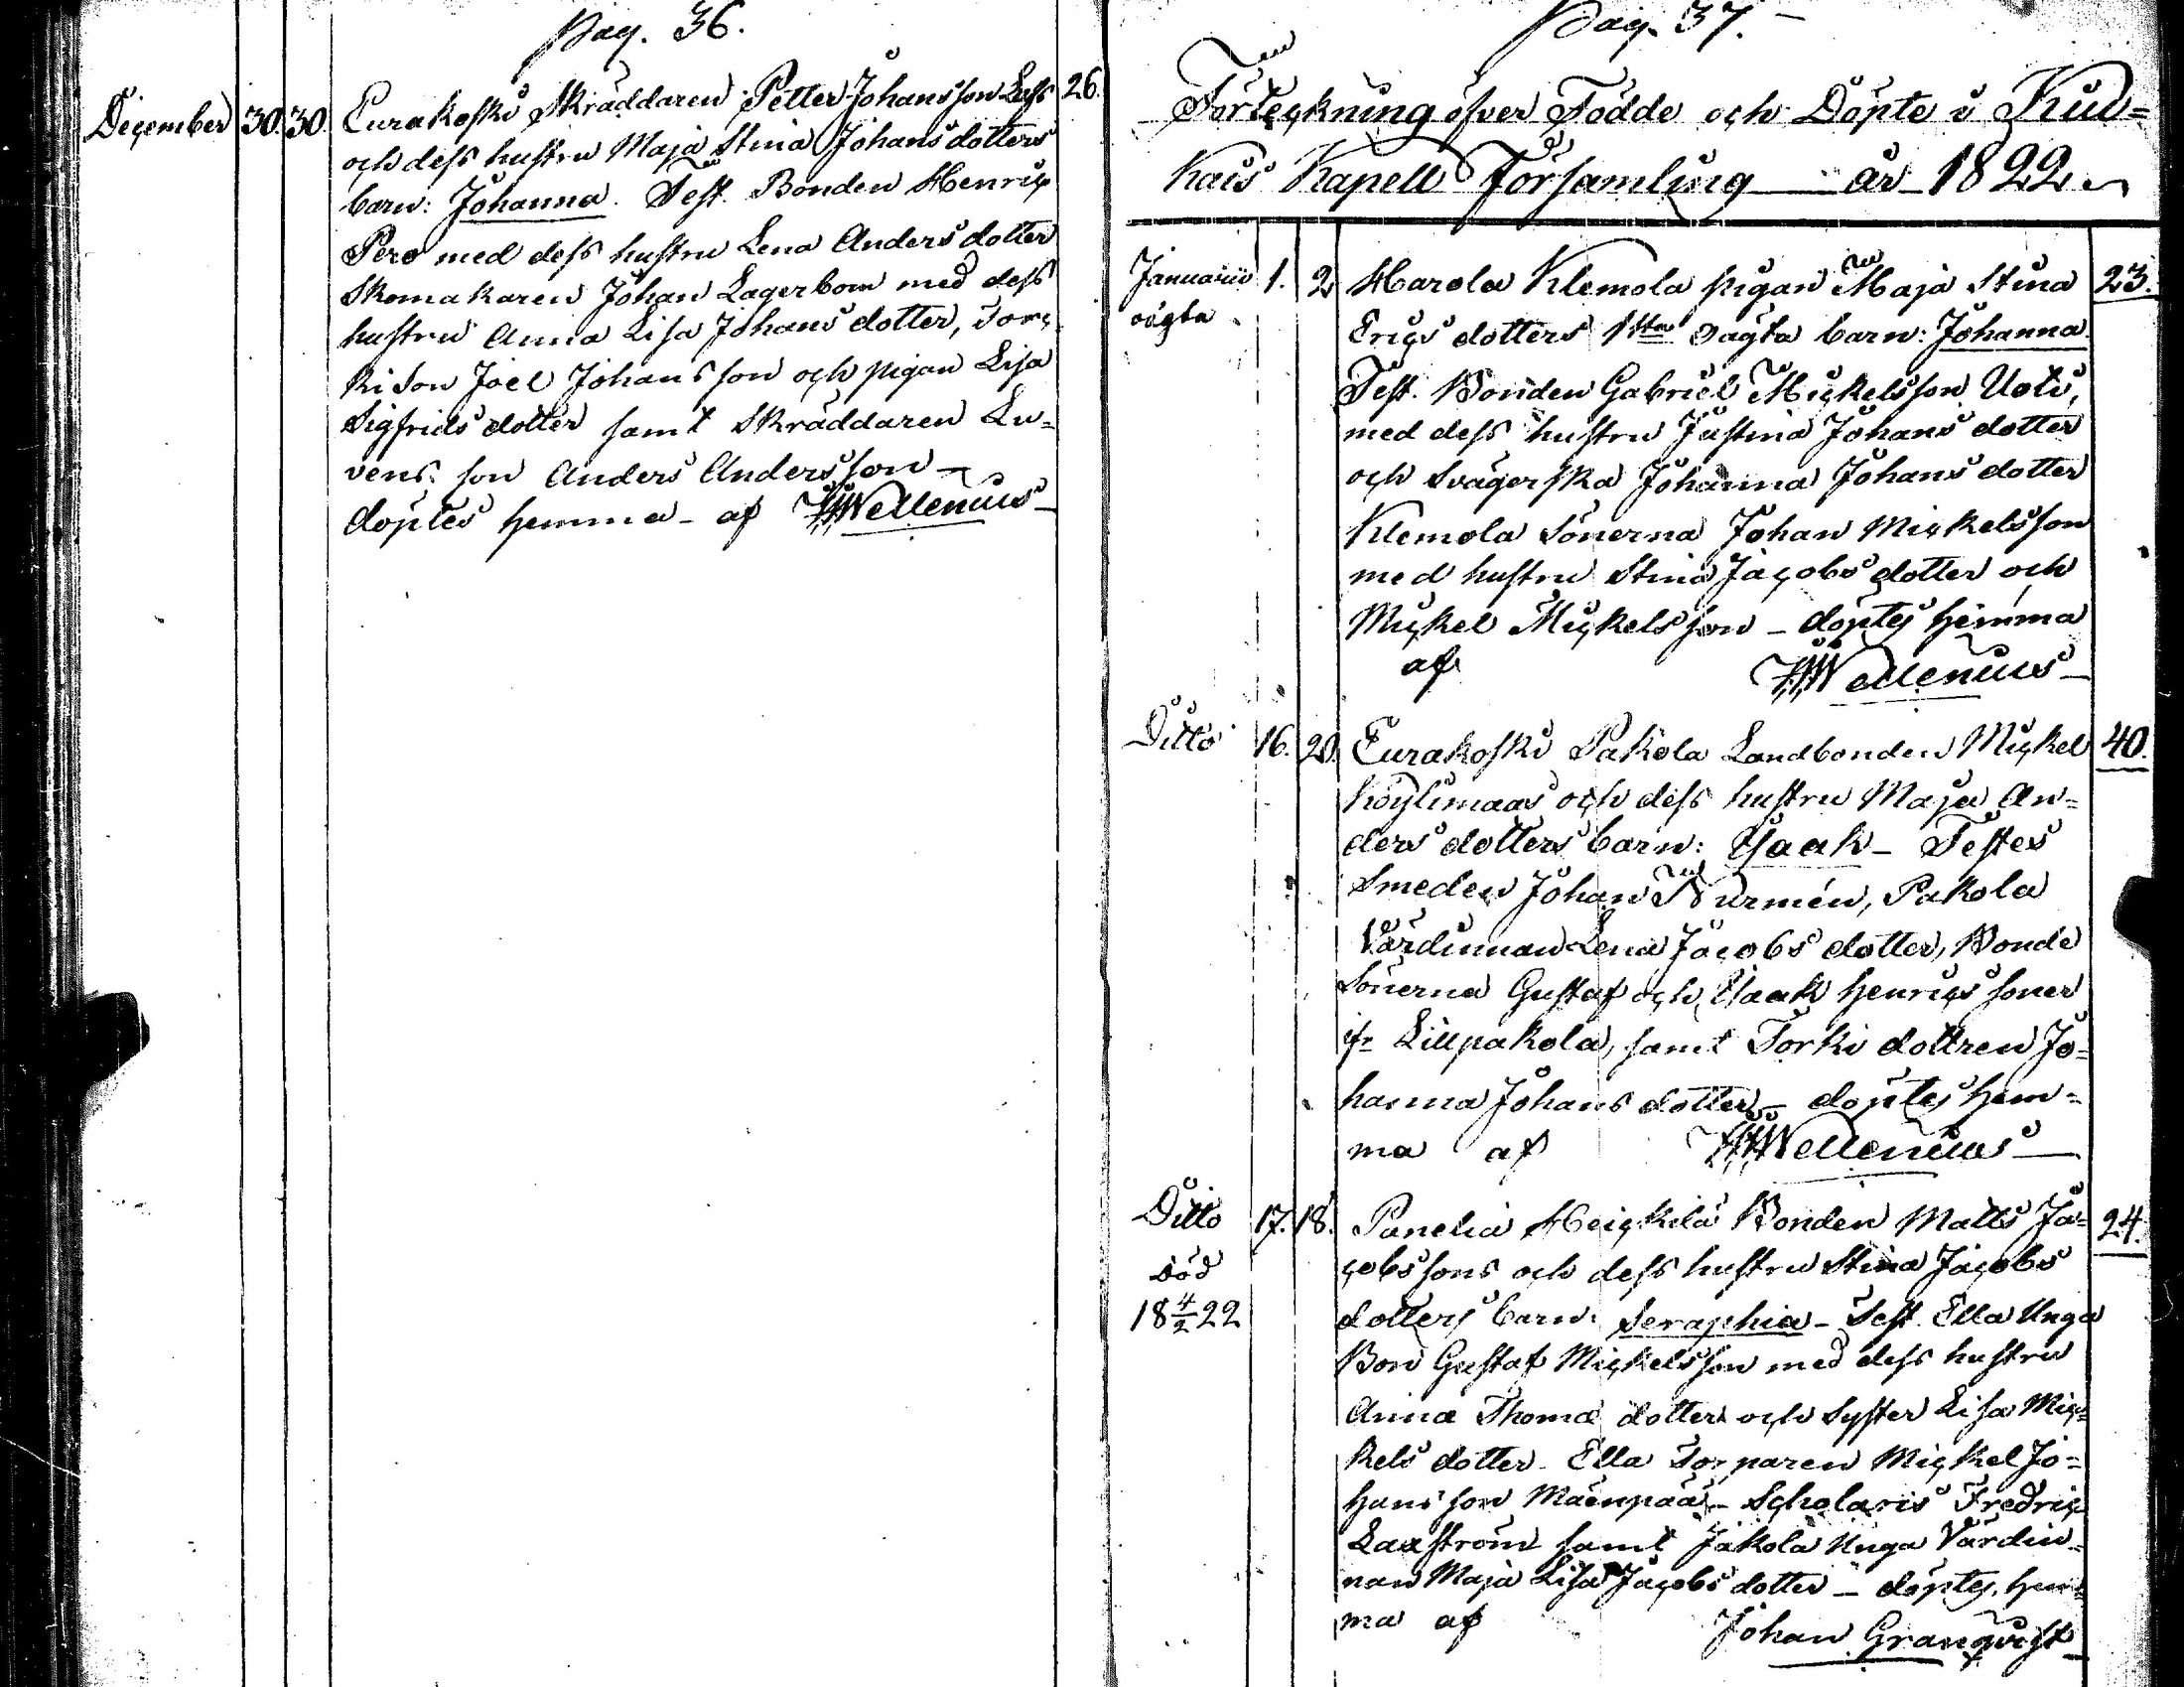 Pag. 36.
December 30. 30. Eurakoski Skräddaren Petter Johansson Lufs 26.
och dess hustru Maja Stina Johansdotters
barn: Johanna. Test. Bonden Henric
Pero med dess hustru Lena Anders dotter
Skomakaren Johan Lagerbom med dess
hustru Anna Lisa Johans dotter, Tor=
ki Son Joel Johansson och pigan Lisa
Sigfrids dotter samt Skräddaren Lu=
vens son Anders Andersson –
döptes hemma – af Wellenius –
Pag. 37. –
Förteckning öfver Födde och Döpte i Kiu=
kais Kapell Församling år 1822.
Januarii 1. 2 Harola Klemola pigan Maja Stina 23.
oägta Erics dotters 1sta oägta barn: Johanna.
Test. Bonden Gabriel Mickelsson Uoti,
med dess hustru Justina Johans dotter
och Svägerska Johanna Johans dotter
Klemola Sönerna Johan Mickelsson
med hustru Stina Jacobs dotter och
Mickel Mickelsson – döptes hemma
af Wellenius –
Ditto 16. 20. Eurakoski Pakola Landbonden Mickel 40.
Köylimaas och dess hustru Maja An=
ders dotters barn: Isaak – Testes
Smeden Johan Nurmén, Pakola
Värdinnan Lena Jacobs dotter, Bonde
Sönerna Gustaf och Isaak Henrics söner
ifr Lillpakola, samt Torki dottren Jo=
hanna Johans dotter – döptes hem=
ma af Wellenius –
Ditto 17. 18. Panelia Heickilä Bonden Matts Ja= 24.
död cobssons och dess hustru Stina Jacobs
18 4/2 22 dotters barn: Seraphia – Test. Ella Unga
Bon Gustaf Mickelsson med dess hustru
Anna Thomæ dotter och Syster Lisa Mic=
kels dotter – Ella Torparen Mickel Jo=
hansson Mäenpää – Scholaris Fredric
Laxström samt Jakola Unga Värdin=
nan Maja Lisa Jacobs dotter – döptes hem=
ma af Johan Granqvist –